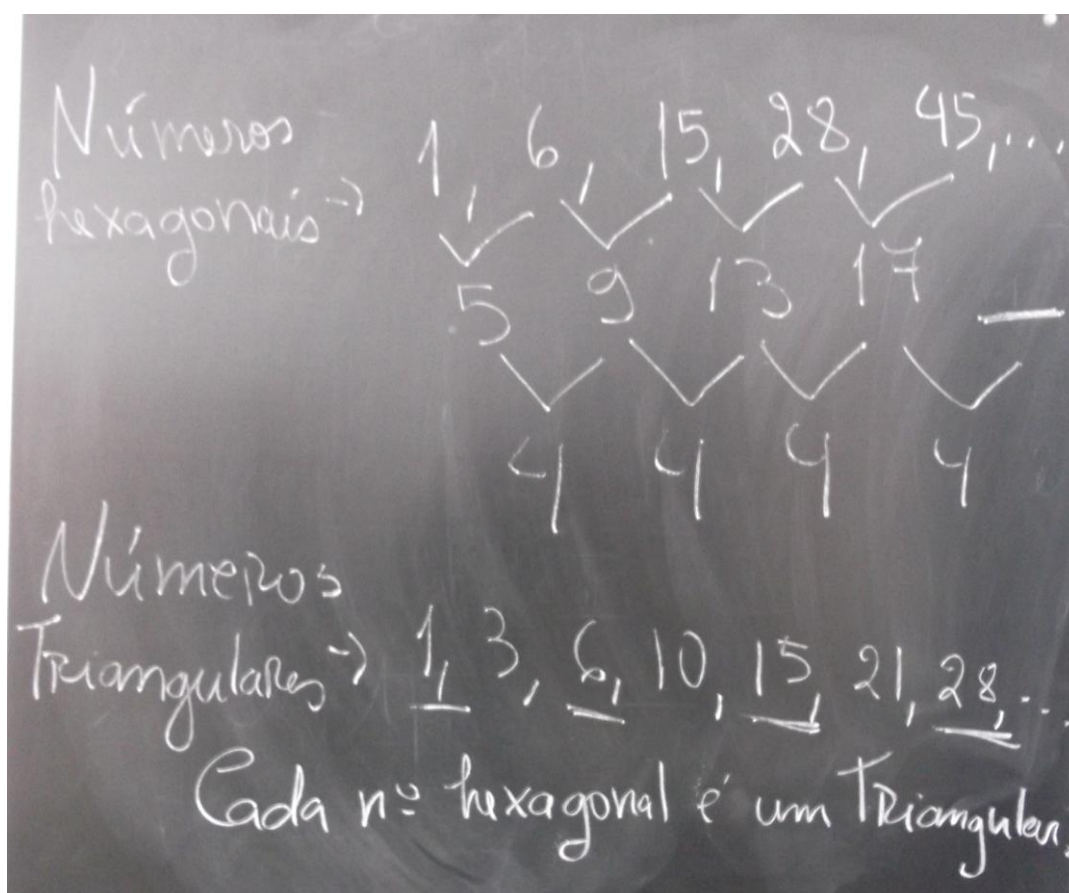 Números
hexagonais → 1, 6, 15, 28, 45,...
5 9 13 17 —
4 4 4 4
Números
Triangulares → 1, 3, 6, 10, 15, 21, 28,...
Cada nº hexagonal é um Triangular.